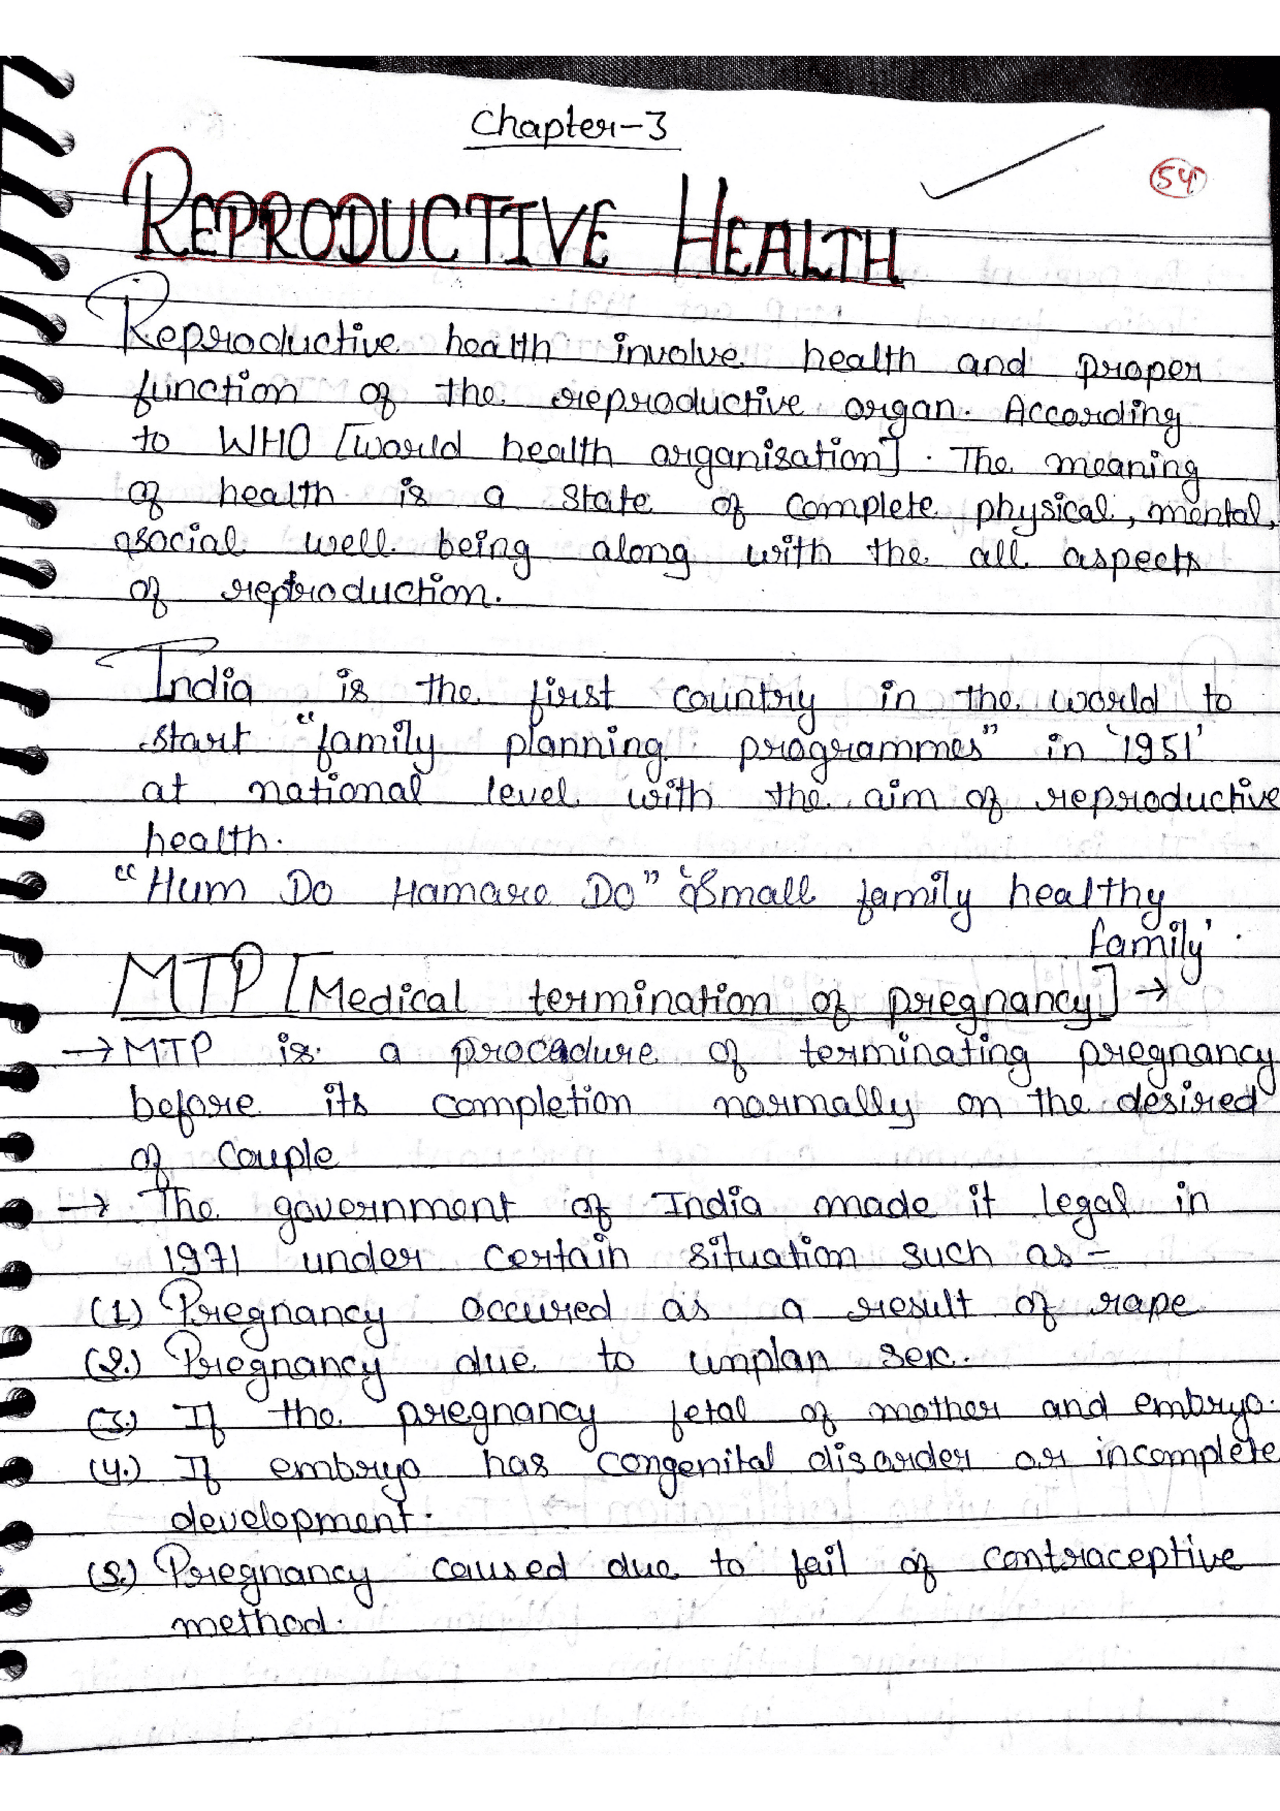 Chapter-3
54
REPRODUCTIVE HEALTH
Reproductive health involve health and proper
function of the reproductive organ. According
to WHO [world health organisation]. The meaning
of health is a state of complete physical, mental,
social well being along with the all aspects
of reproduction.
India is the first country in the world to
start "family planning programmes" in '1951'
at national level with the aim of reproductive
health.
"Hum Do Hamare Do" 'Small family healthy
family'.
MTP [Medical termination of pregnancy] →
→ MTP is a procadure of terminating pregnancy
before its completion normally on the desired
of couple
→ The government of India made it legal in
1971 under certain situation such as -
(1) Pregnancy occured as a result of rape
(2.) Pregnancy due to unplan sex.
(3.) If the pregnancy fetal of mother and embryo.
(4.) If embryo has congenital disorder or incomplete
development.
(5.) Pregnancy caused due to fail of contraceptive
method.